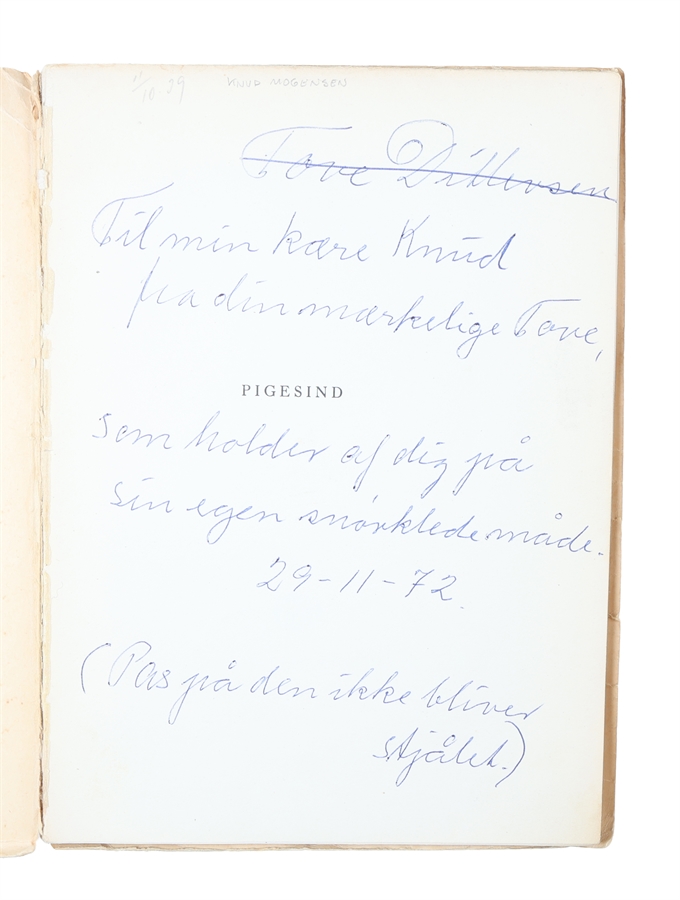 11/10-99 KNUD MOGENSEN
Tove Ditlevsen
Til min kære Knud
fra din mærkelige Tove,
PIGESIND
som holder af dig på
sin egen snørklede måde.
29-11-72.
(Pas på den ikke bliver
stjålet.)